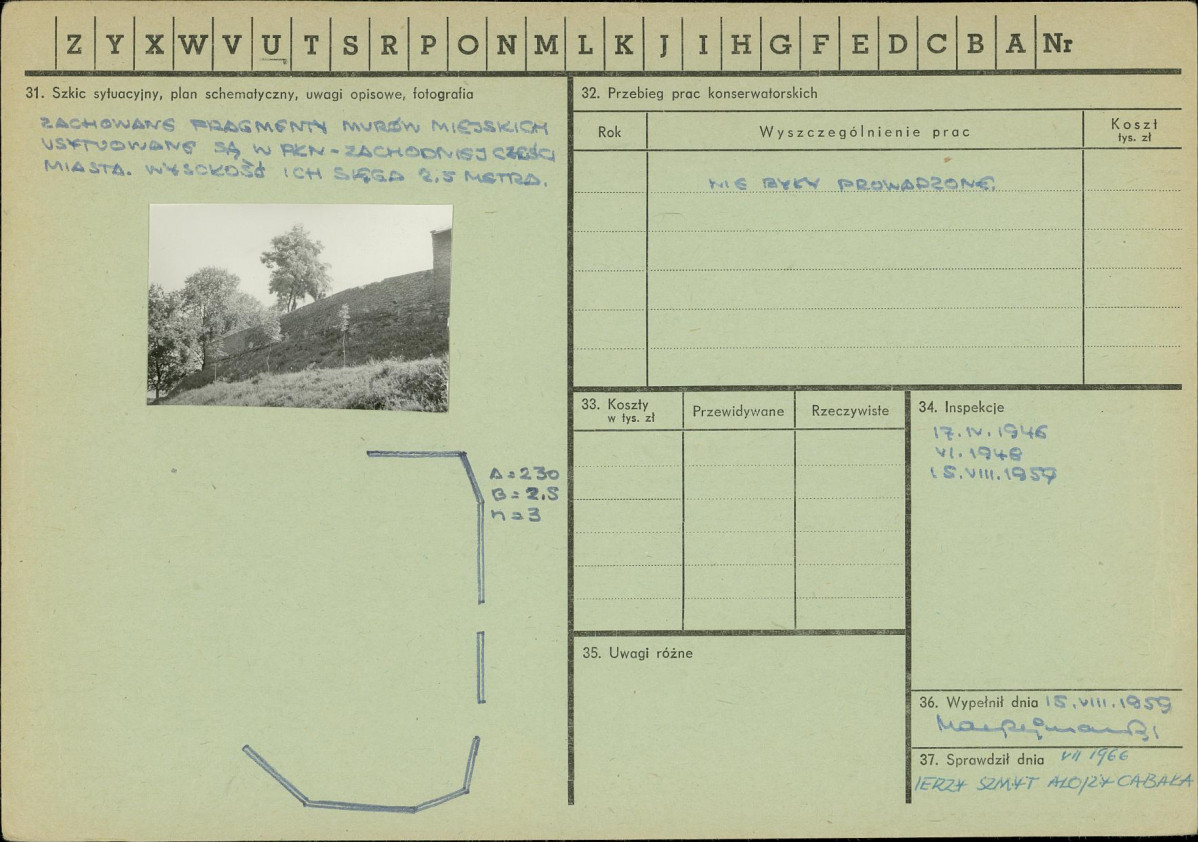 Z Y X W V U T S R P O N M L K J I H G F E D C B A Nr
31. Szkic sytuacyjny, plan schematyczny, uwagi opisowe, fotografia
ZACHOWANE FRAGMENTY MURÓW MIEJSKICH
USYTUOWANE SĄ W PŁN-ZACHODNIEJ CZĘŚCI
MIASTA. WYSOKOŚĆ ICH SIĘGA 2,5 METRA.
A=230
B=2.5
n=3
32. Przebieg prac konserwatorskich
Rok
Wyszczególnienie prac
Koszt
tys. zł
NIE BYŁY PROWADZONE.
33. Koszty
w tys. zł
Przewidywane
Rzeczywiste
34. Inspekcje
17.IV.1946
VI.1948
15.VIII.1959
35. Uwagi różne
36. Wypełnił dnia 15.VIII.1959
37. Sprawdził dnia VII 1966
JERZY SZMYT ALOJZY CABAŁA